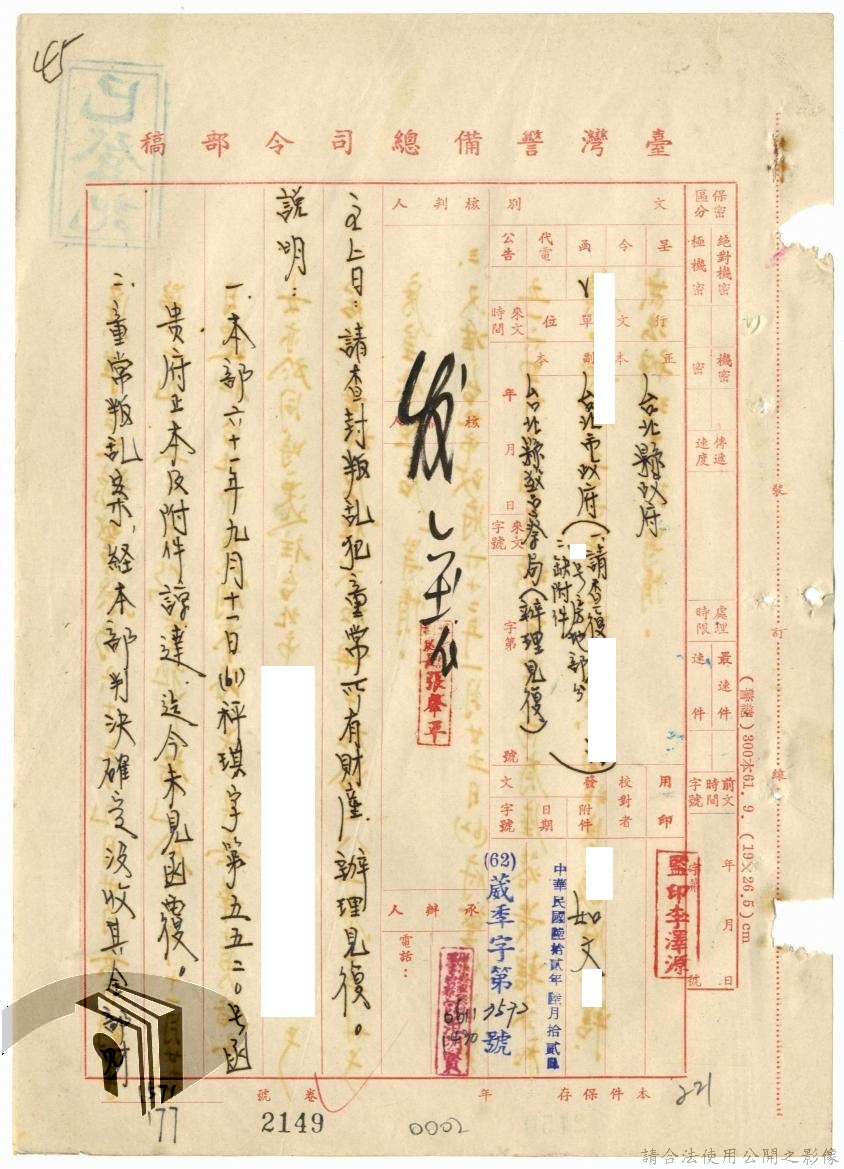 45
已登記
臺灣警備總司令部稿
保密區分
絕對機密
極機密
機密
密
傳遞速度
處理時限
最速件
速件
前文時間字號
年月日
字第
號
文別
呈
令
函
代電
公告
行文單位
正本
副本
台北縣政府
台北市政府(一、請查復
号房地部分
二、缺附件
)
台北縣警察局(辦理見復)
來文時間
年
月
日
來文字號
字第
號
用印
監印李澤源
校對者
發文
附件
如文
日期
中華民國陸拾貳年陸月拾貳日
字號
(62)葳季字第3592號
核判人
核
人
发
張
平
承辦人
電話:
主旨:請查封叛乱犯童常所有財產,辦理見復。
説明:
一、本部六十一年九月十一日(61)秤琪字第五五二0号函
貴府正本及附件諒達,迄今未見函覆。
二、童常叛乱案,經本部判決確定沒收其全部財
裝
訂
線
300本61.9.(19×26.5)cm
本件保存
年
卷
號
221
77
2149
0002
請合法使用公開之影像